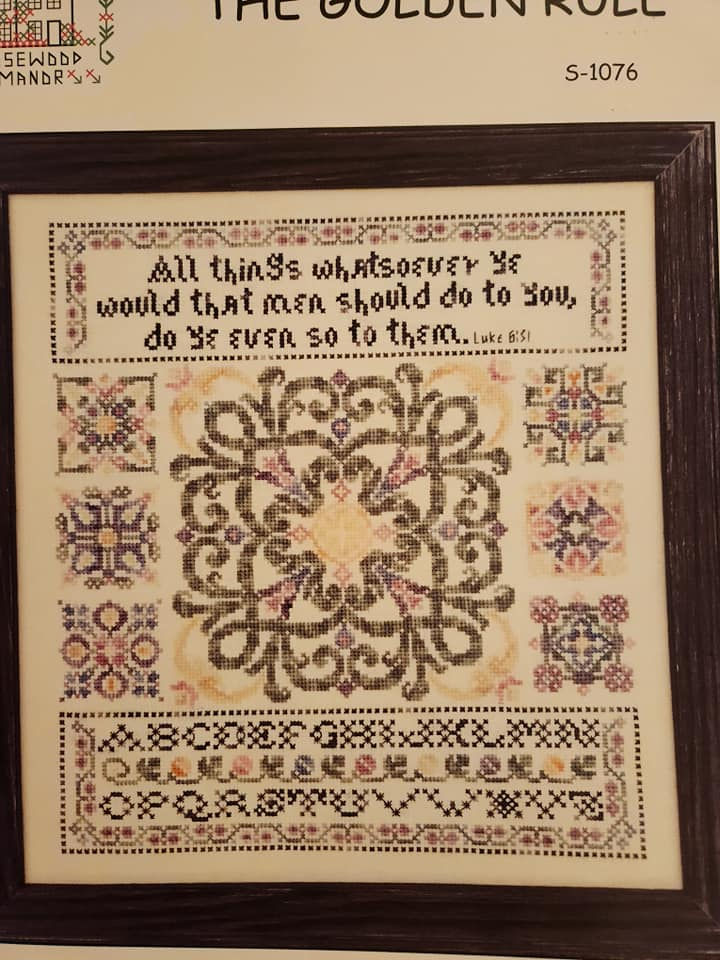 THE GOLDEN RULE
SEWOOD
MANOR
S-1076
All things whatsoever ye
would that men should do to you,
do ye even so to them. Luke 6:31
ABCDEFGHIJKLMN
OPQRSTUVWXYZ